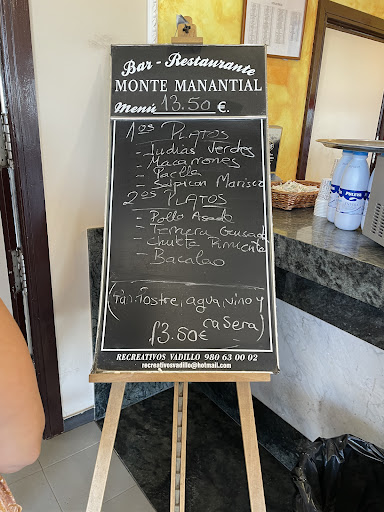 Bar - Restaurante
MONTE MANANTIAL
Menú 13.50 €.
1os PLATOS
- Judías Verdes
- Macarrones
- Paella
- Salpicon Marisco
2os PLATOS
- Pollo Asado
- Ternera Guisada
- Chuleta Pimientos
- Bacalao
(Pan, Postre, agua, vino y
casera)
13.50€
RECREATIVOS VADILLO 980 63 00 02
recreativosvadillo@hotmail.com